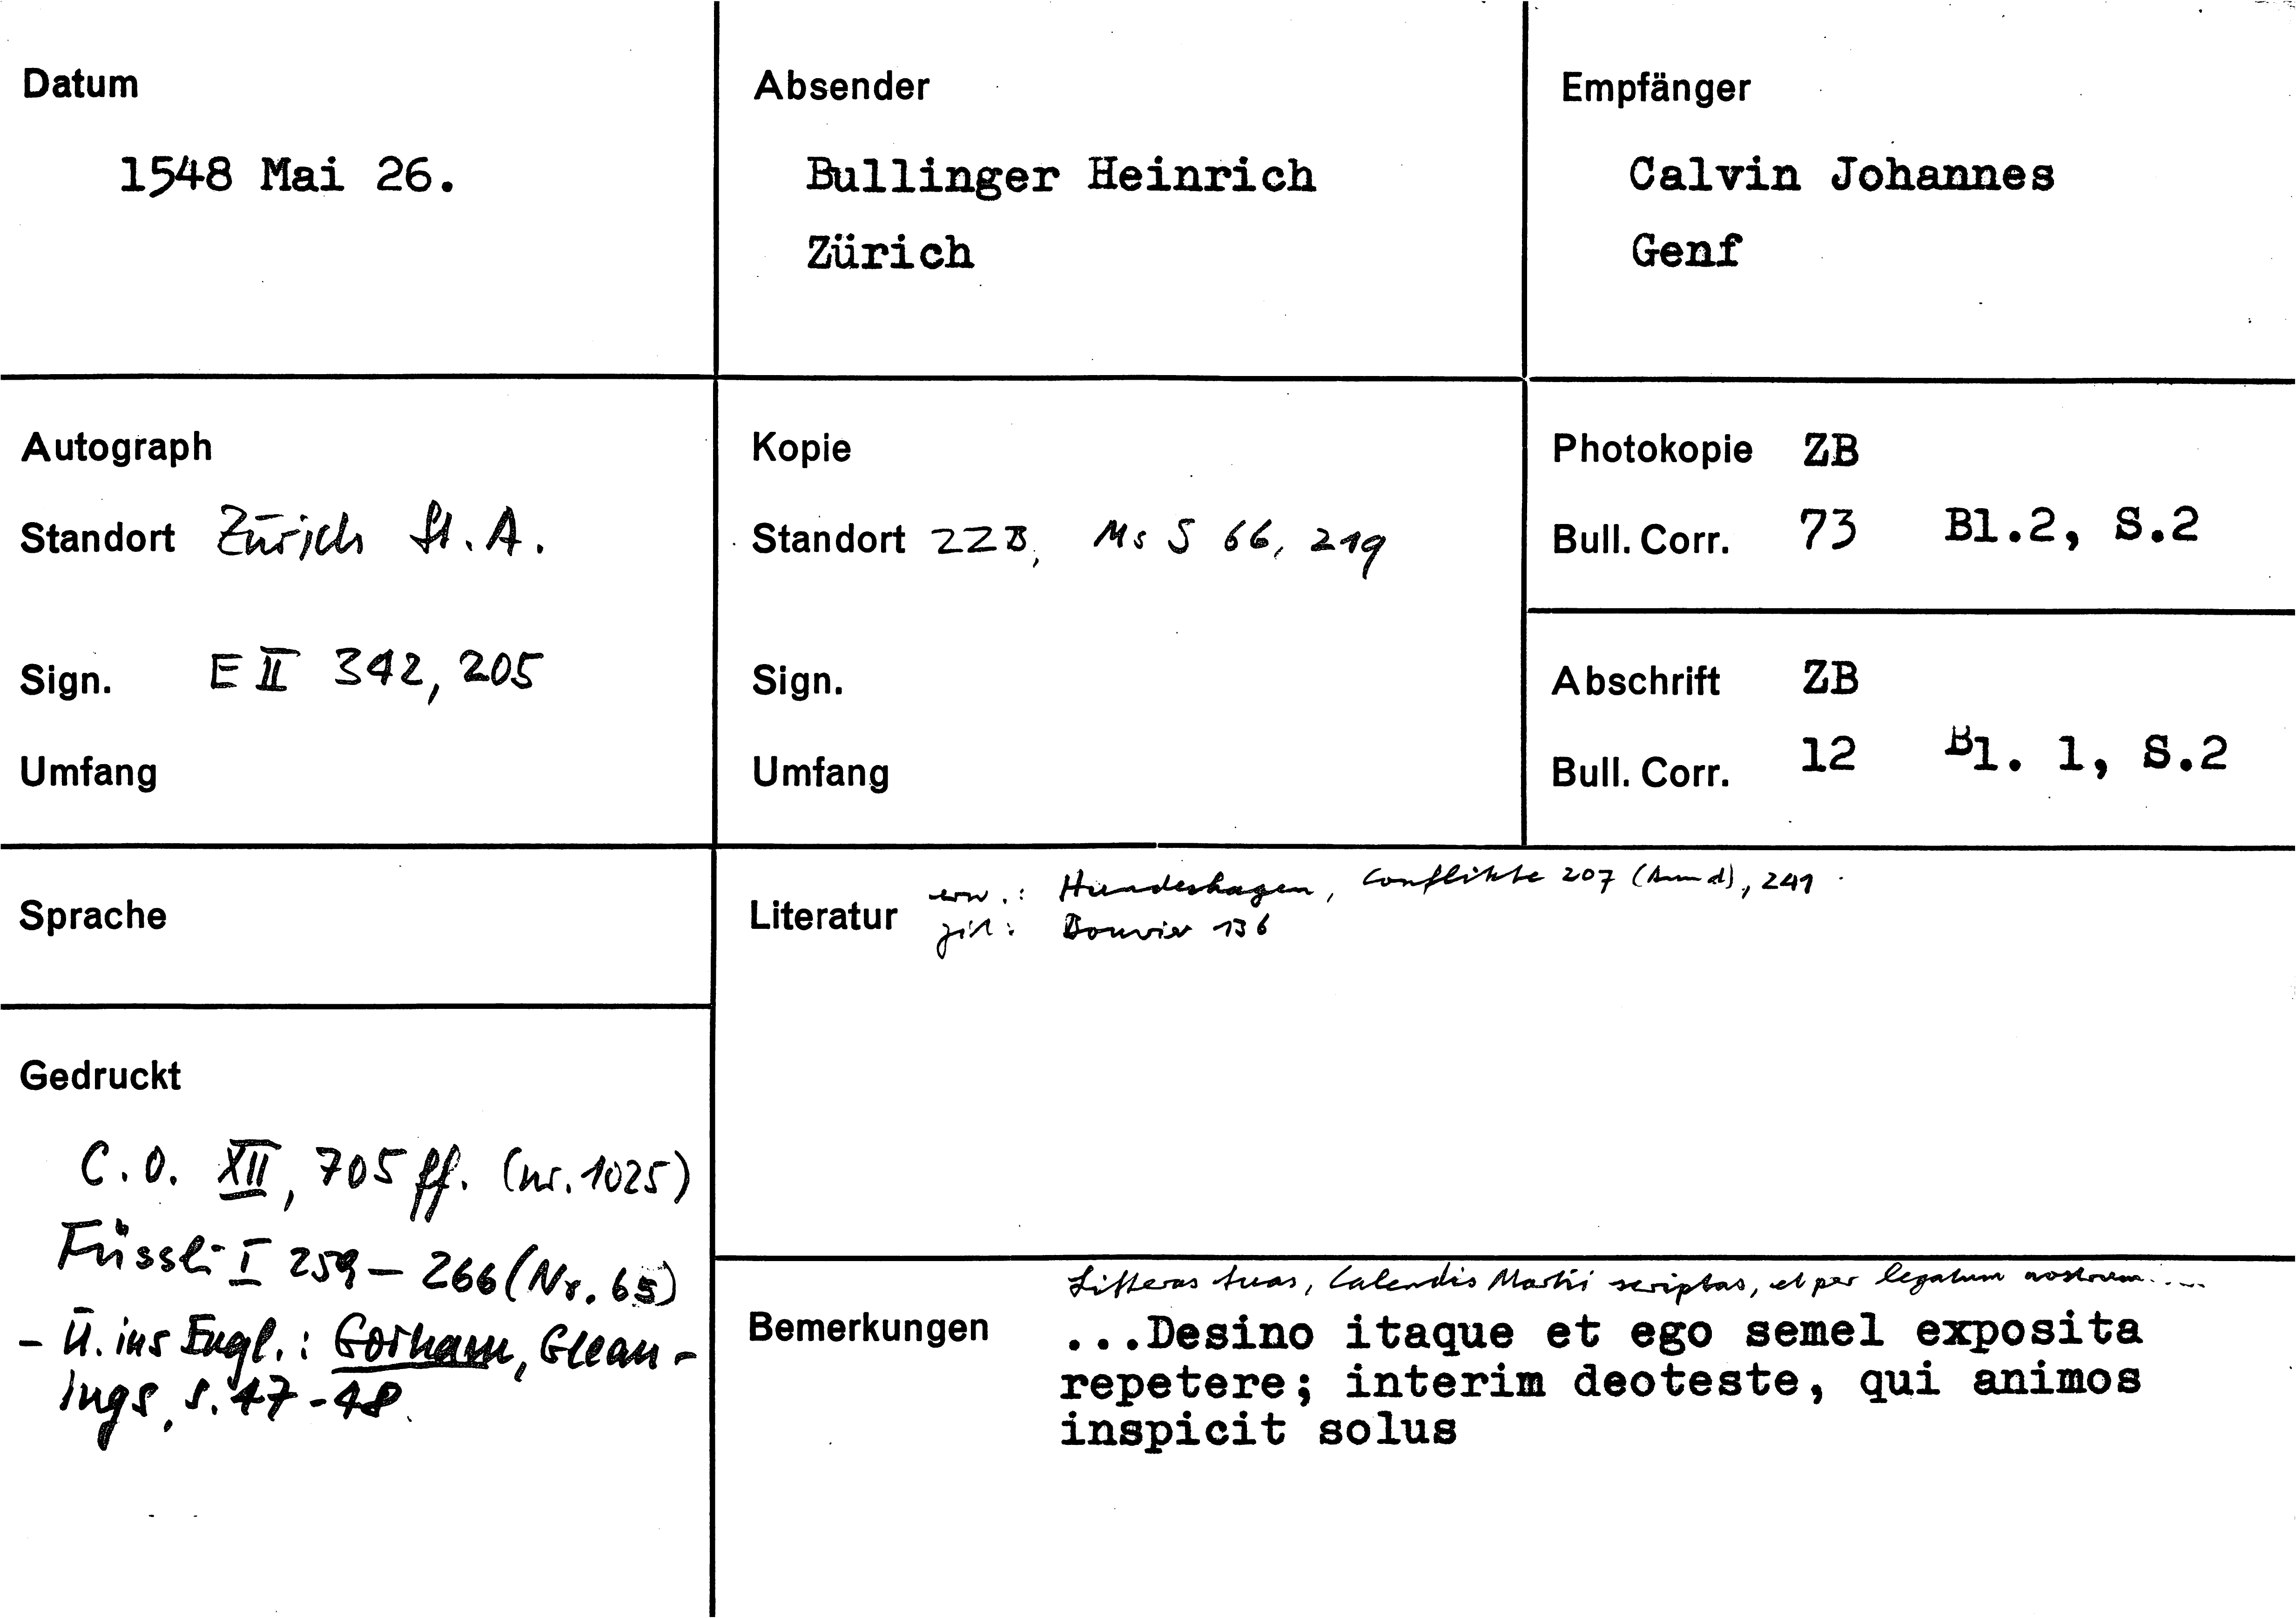 Datum
1548 Mai 26.
Absender
Bullinger Heinrich
Zürich
Empfänger
Calvin Johannes
Genf
Autograph
Standort Zürich St. A.
Sign. E II 342, 205
Umfang
Kopie
Standort ZZB, Ms S 66, 219
Sign.
Umfang
Photokopie ZB
Bull. Corr. 73 Bl.2, S.2
Abschrift ZB
Bull. Corr. 12 Bl. 1, S.2
Sprache
Literatur
erw.: Hundeshagen, Conflikte 207 (Anm d), 241
zit: Bouvier 136
Gedruckt
C. O. XII, 705 ff. (nr. 1025)
Füssli I 259 - 266 (Nr. 65)
- Ü. ins Engl.: Gorham, Glean-
ings, S. 47-48
Bemerkungen
Litteras tuas, Calendis Martii scriptas, et per legatum nostrum.....
...Desino itaque et ego semel exposita
repetere; interim deoteste, qui animos
inspicit solus